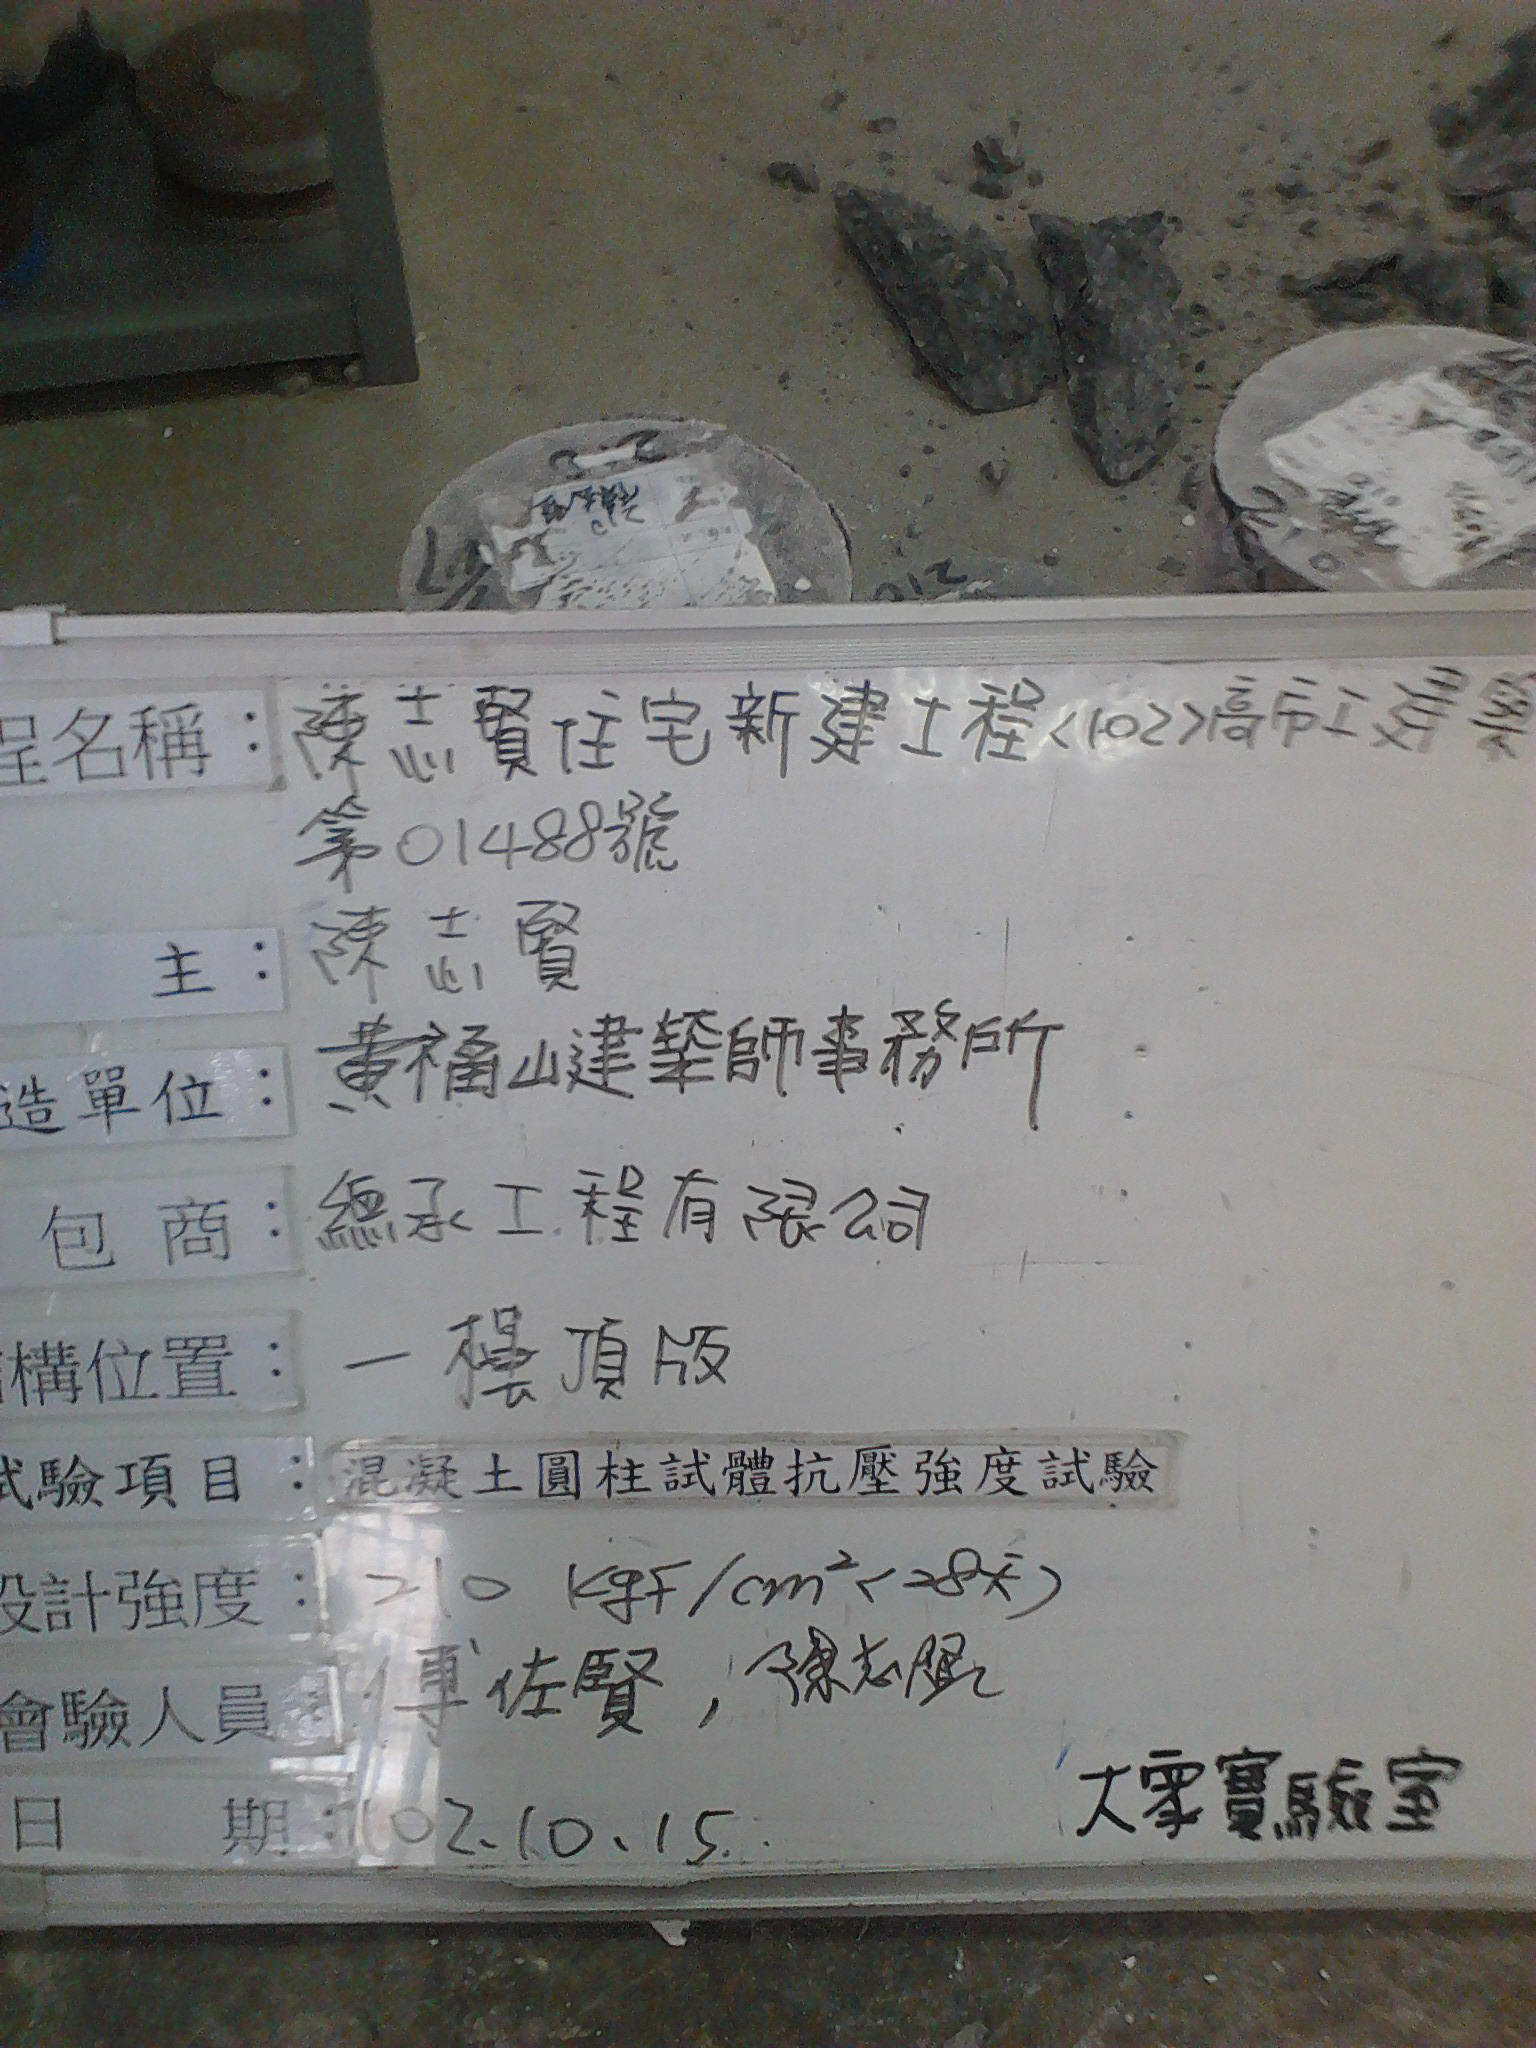 3-2
210
程名稱：陳志賢住宅新建工程<102>高市工建築
第01488號
主：陳志賢
造單位：黃福山建築師事務所
包商：總承工程有限公司
構位置：一樓頂版
試驗項目：混凝土圓柱試體抗壓強度試驗
設計強度：210 kgf/cm²<28天>
會驗人員 傅佐賢，陳志賢
日期：102.10.15.
大眾實驗室